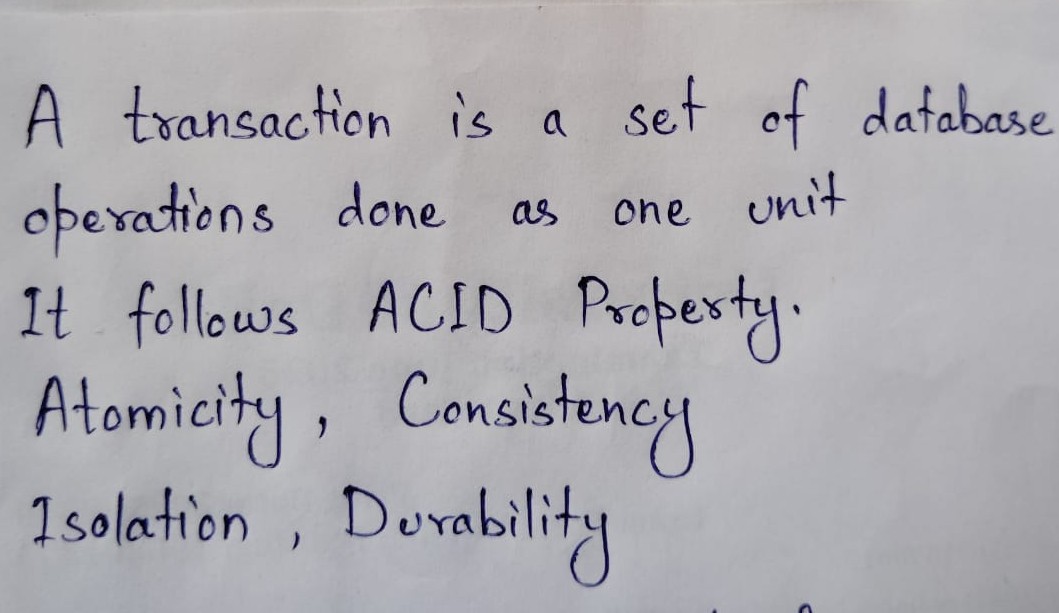 A transaction is a set of database
operations done as one unit
It follows ACID Property.
Atomicity, Consistency
Isolation, Durability